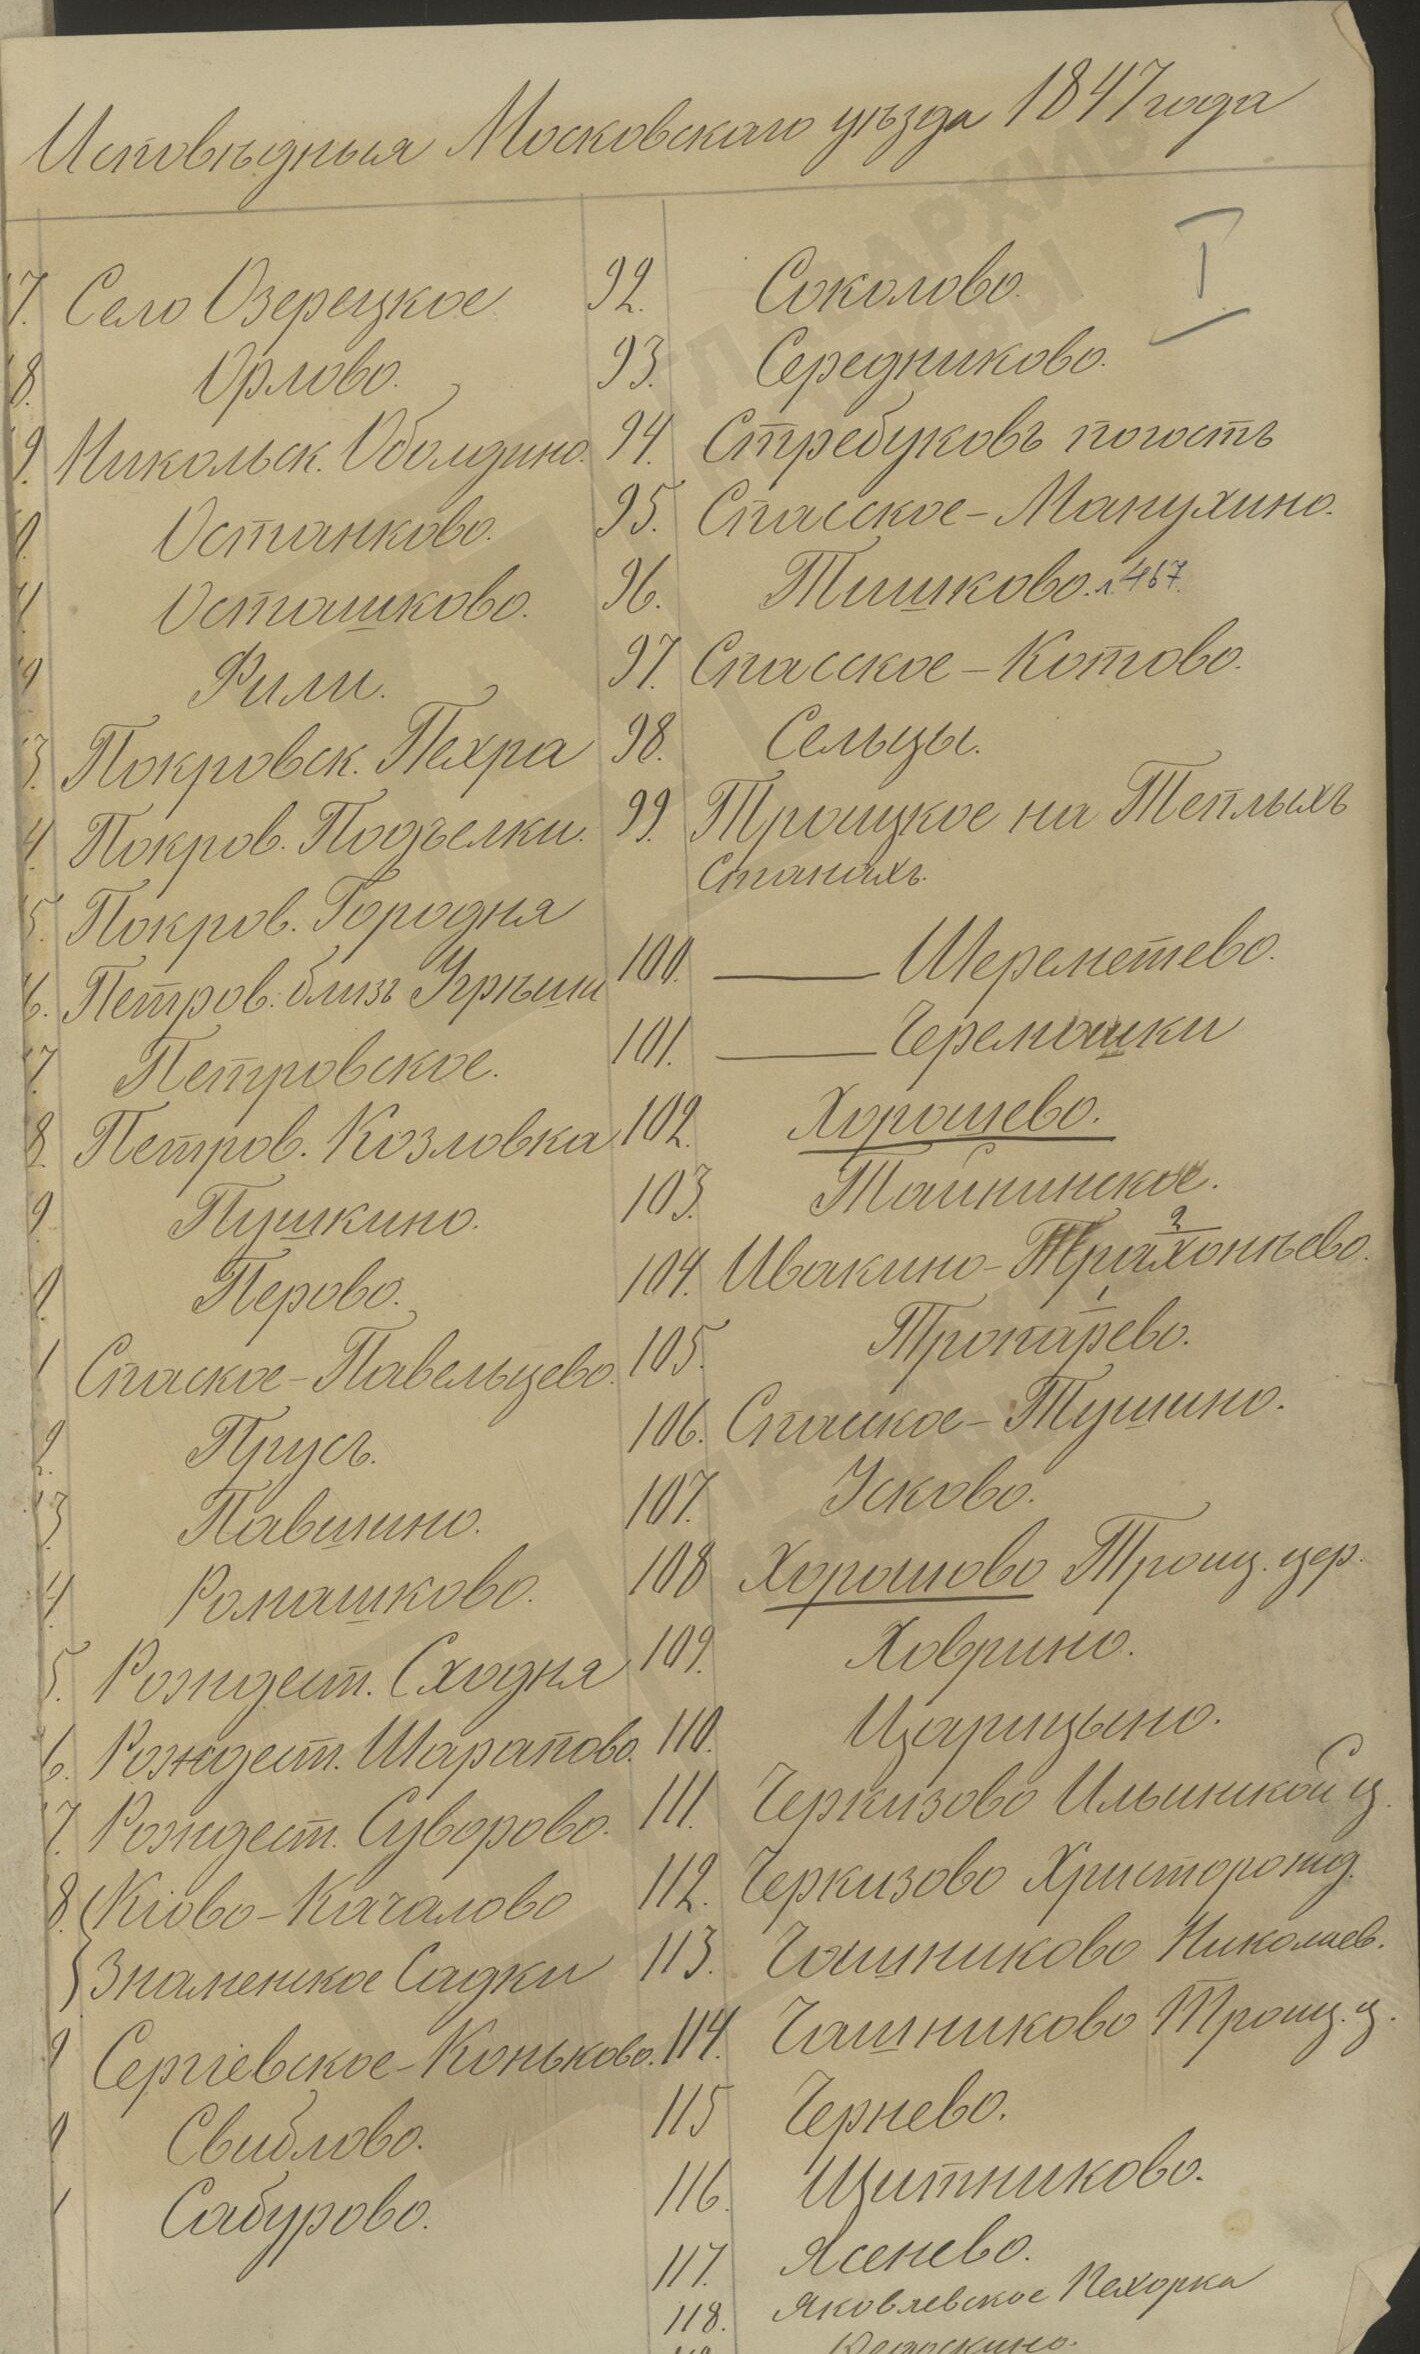 Исповѣдныя Московскаго уѣзда 1847 года
I
7. Село Озерецкое
8. Орлово.
9. Никольск. Оболдино.
0. Останково.
1. Осташково.
2 Фили.
3. Покровск. Пехра
4. Покров. Подъелки.
5. Покров. Городня
6. Петров. близъ Угрѣши
7. Петровское.
8. Петров. Козловка
9. Пушкино.
0. Перово.
1 Спаское-Павельцево.
2. Прусъ.
3. Павшино.
4. Ромашково.
5. Рождест. Сходня
6. Рождест. Шарапово.
7. Рождест. Суворово.
8. Кіово-Качалово
Знаменское Садки
9 Сергіевское-Коньково.
0 Свиблово.
1 Сабурово.
92. Соколово.
93. Середниково.
94. Стребуковъ погостъ
95. Спасское-Манухино.
96. Тишково. л 467.
97. Спасское-Котово.
98. Сельцы.
99. Троицкое на Теплыхъ
Станахъ.
100. — Шереметево.
101. — Черемошки
102. Хорошево.
103. Тайнинское.
104. Ивакино-Трахонѣево.
105. Тропарево.
106. Спаское-Тушино.
107. Усково.
108 Хорошово Троиц. цер.
109. Ховрино.
110. Царицыно.
111. Черкизово Ильинской ц.
112. Черкизово Христорожд.
113. Чашниково Николаев.
114. Чашниково Троиц. ц.
115 Чернево.
116. Щитниково.
117. Ясенево.
118. Яковлевское Пехорка